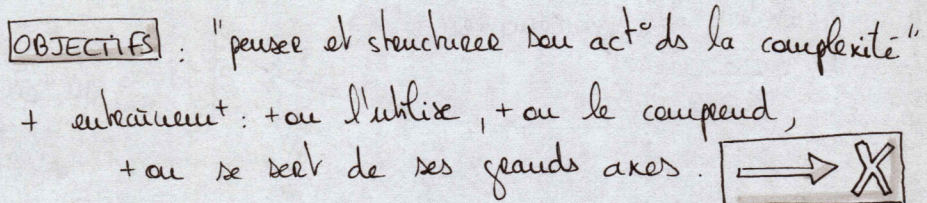 OBJECTIFS : "penser et structurer son act° ds la complexité"
+ entraînem^t : + on l'utilise, + on le comprend,
+ on se sert de ses grands axes. → X